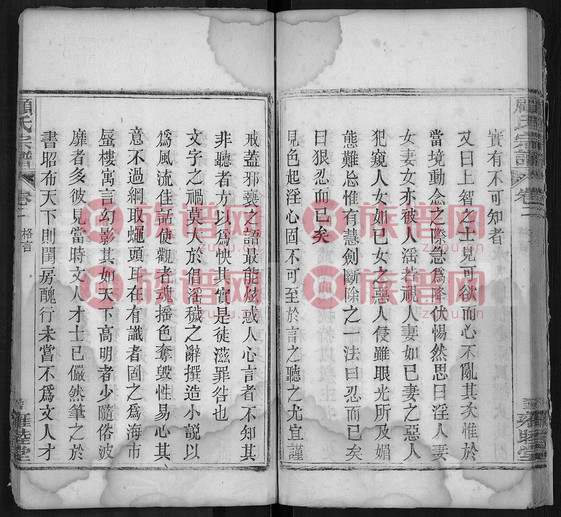 實有不可知者
又曰上智之士見可欲而心不亂其次惟於
當境動念之際急爲降伏惕然思曰淫人妻
女妻女亦被人淫若視人妻如已妻之惡人
犯窺人女如已女之惡人侵雖眼光所及媚
態難忘惟有慧劍斷除之一法曰忍而已矣
曰狠忍而已矣
見色起淫心固不可至於言之聽之尤宜謹
戒蓋邪褻之語最能煽惑人心言者不知其
非聽者方以爲快其實是徒滋罪咎也
文字之禍莫大於倡淫穢之辭撰造小說以
爲風流佳話使觀者魂搖色奪毀性易心其
意不過網取蠅頭耳在有識者固之爲海市
蜃樓寓言幻影其如天下高明者少隨俗波
靡者多彼見當時文人才士已儼然筆之於
書昭布天下則閨房醜行未嘗不爲文人才
顧氏宗譜
卷二
格言
雍睦堂
顧氏宗譜
卷二
格言
雍睦堂
族譜网
zupu.cn